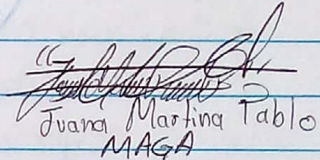 Juana Martina Pablo
MAGA